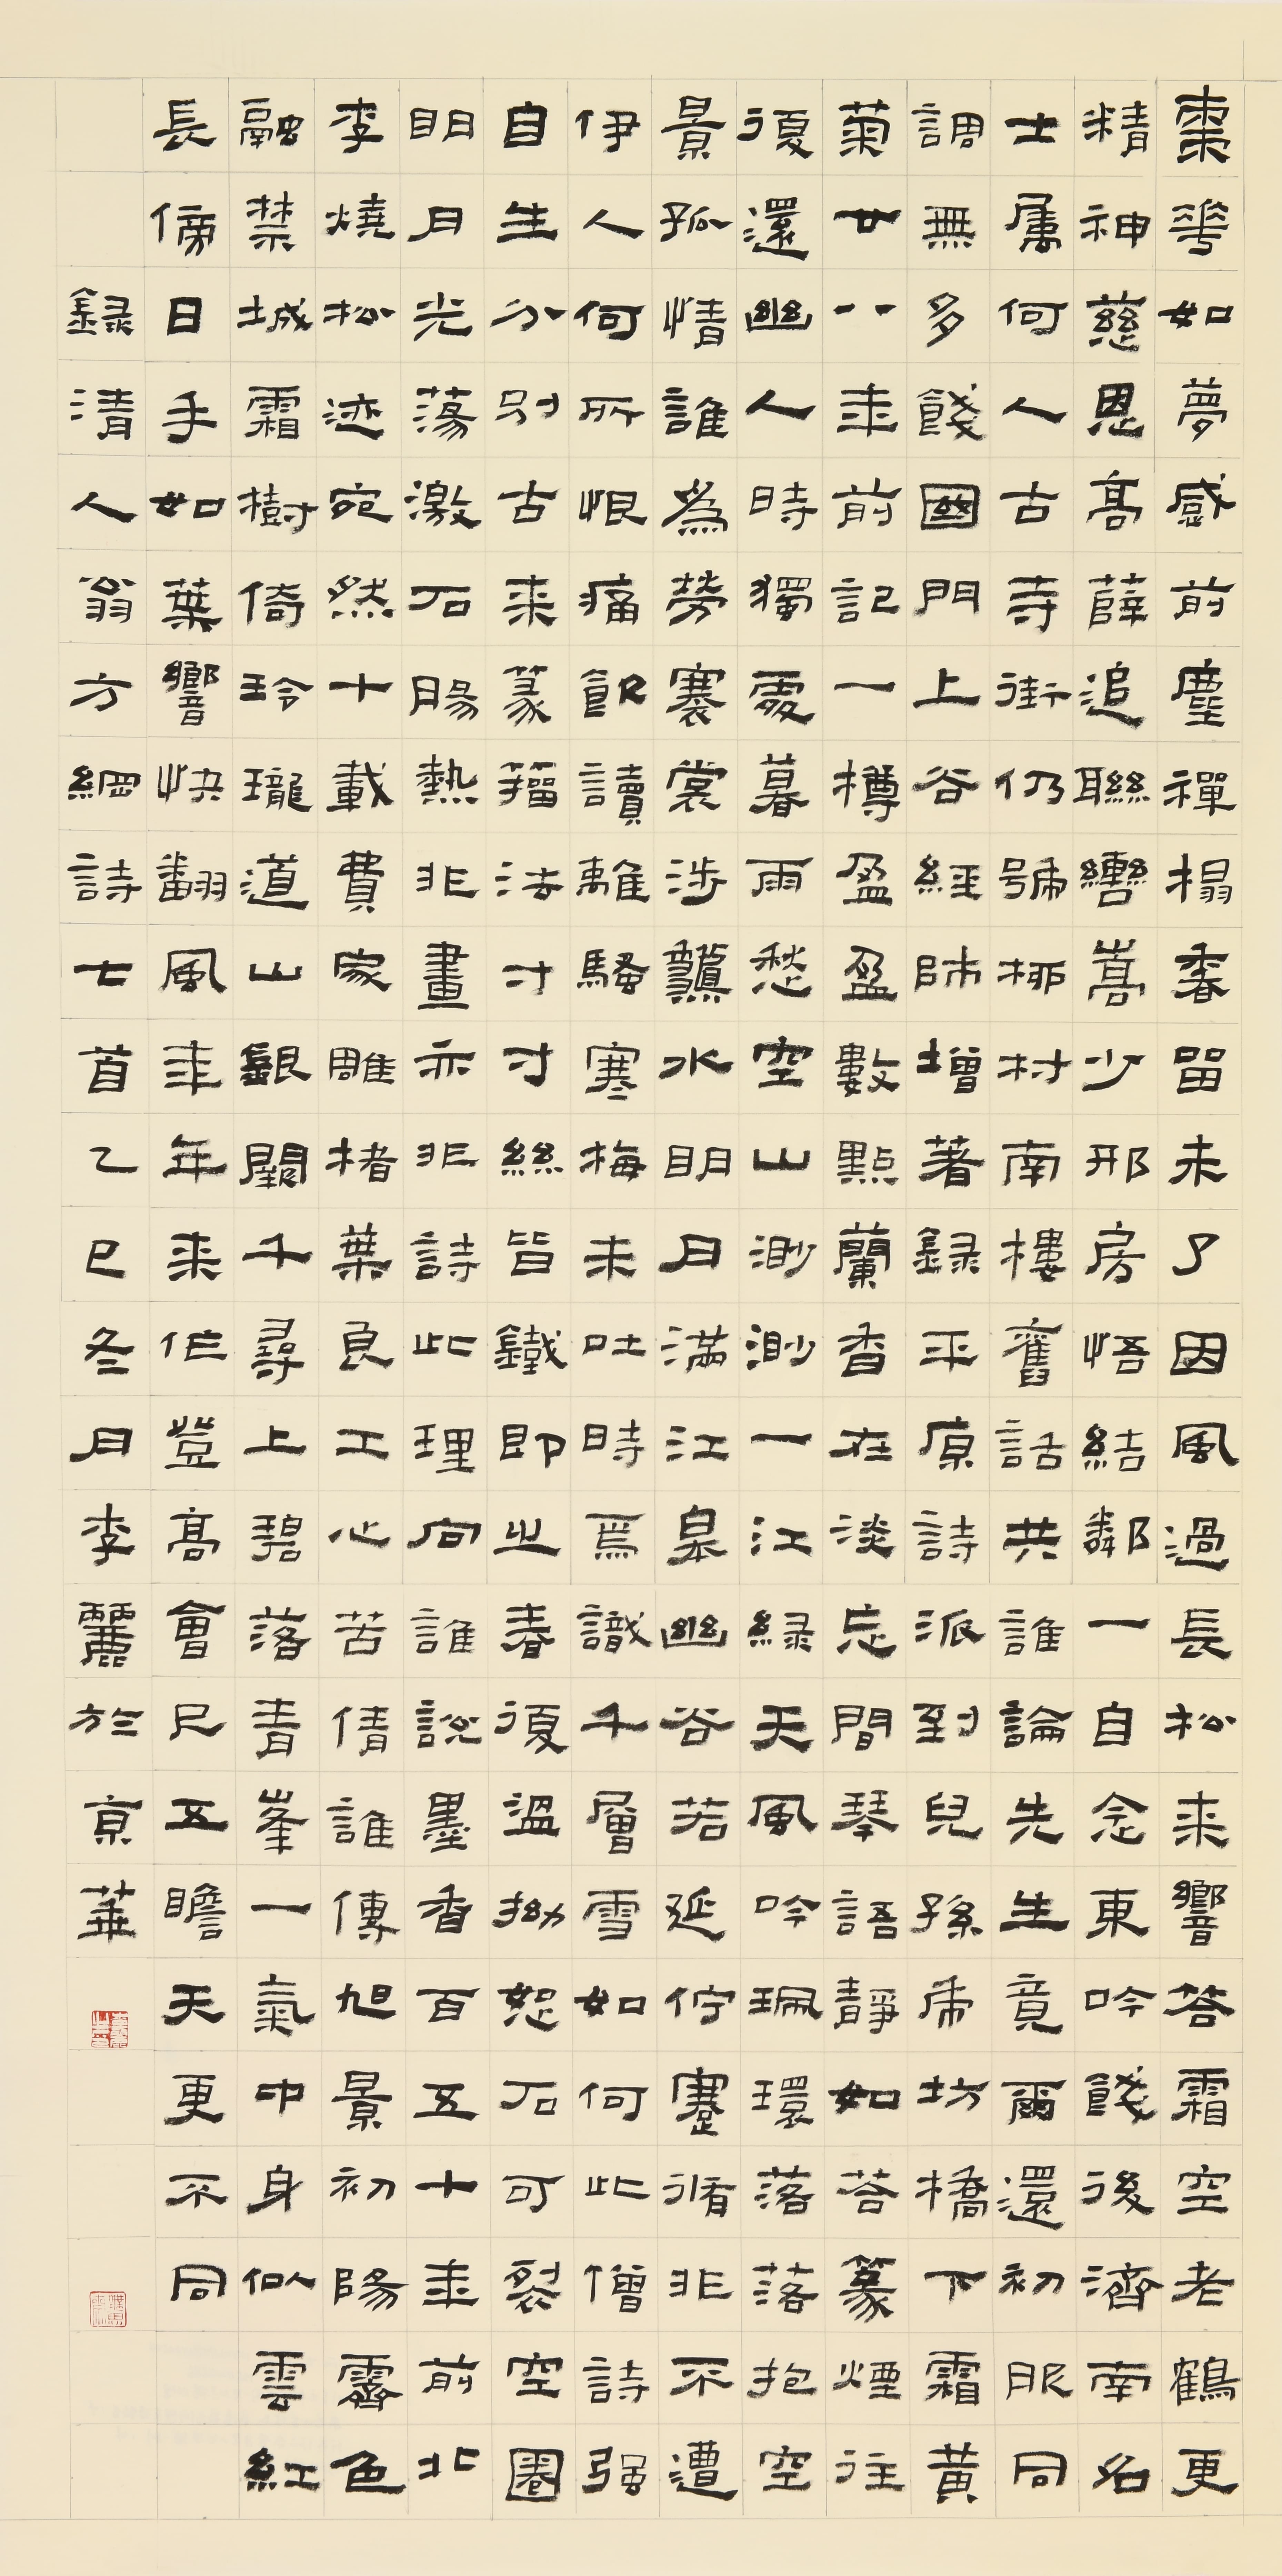 棗華如夢感前塵禪榻春留未了因風過長松来響答霜空老鶴更
精神慈恩高薛追聯轡嵩少邢房悟結鄰一自念東吟餞後濟南名
士屬何人古寺街仍號椰村南樓舊話共誰論先生竟爾還初服同
調無多餞國門上谷經師增著録平原詩派到兒孫帋坊橋下霜黃
菊廿八年前記一樽盈盈數點蘭香在淡忘間琴語靜如苔篆煙往
復還幽人時獨處暮雨愁空山渺渺一江緑天風吟珮環落落抱空
景孤情誰為勞褰裳涉龔水明月滿江皋幽谷若延佇蹇脩非不遭
伊人何所恨痛飲讀離騷寒梅未吐時焉識千層雪如何此僧詩强
自生分別古来篆籀法寸寸絲皆鐵即之春復温拗怒石可裂空圈
明月光蕩激石腸熱非畫亦非詩此理向誰說墨香百五十年前北
李燒松迹宛然十載費家雕楮葉良工心苦倩誰傳旭景初陽霽色
融禁城霜樹倚玲瓏道山銀闕千尋上碧落青峯一氣中身似雲紅
長傍日手如葉響快翻風年年来作登高會尺五瞻天更不同
録清人翁方綱詩七首乙巳冬月李麗於京華